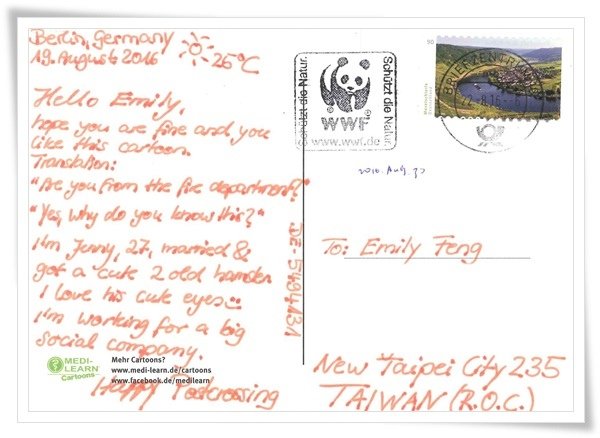 Berlin, Germany
19. August 2016 26°C
Hello Emily,
hope you are fine and you
like this cartoon.
Translation:
"Are you from the fire department?"
"Yes, why do you know this?"
I'm Jenny, 27, married &
got a cute 2 old hamster
I love his cute eyes
I'm working for a big
social company.
Happy Postcrossing
MEDI-
LEARN
Cartoons
Mehr Cartoons?
www.medi-learn.de/cartoons
www.facebook.de/medilearn
DE-5494131
Schützt die Natur.
WWF
www.wwf.de
Schützt die Natur.
90
Deutschland
BRIEFZENTRUM
To: Emily Feng
New Taipei City 235
TAIWAN (R.O.C.)